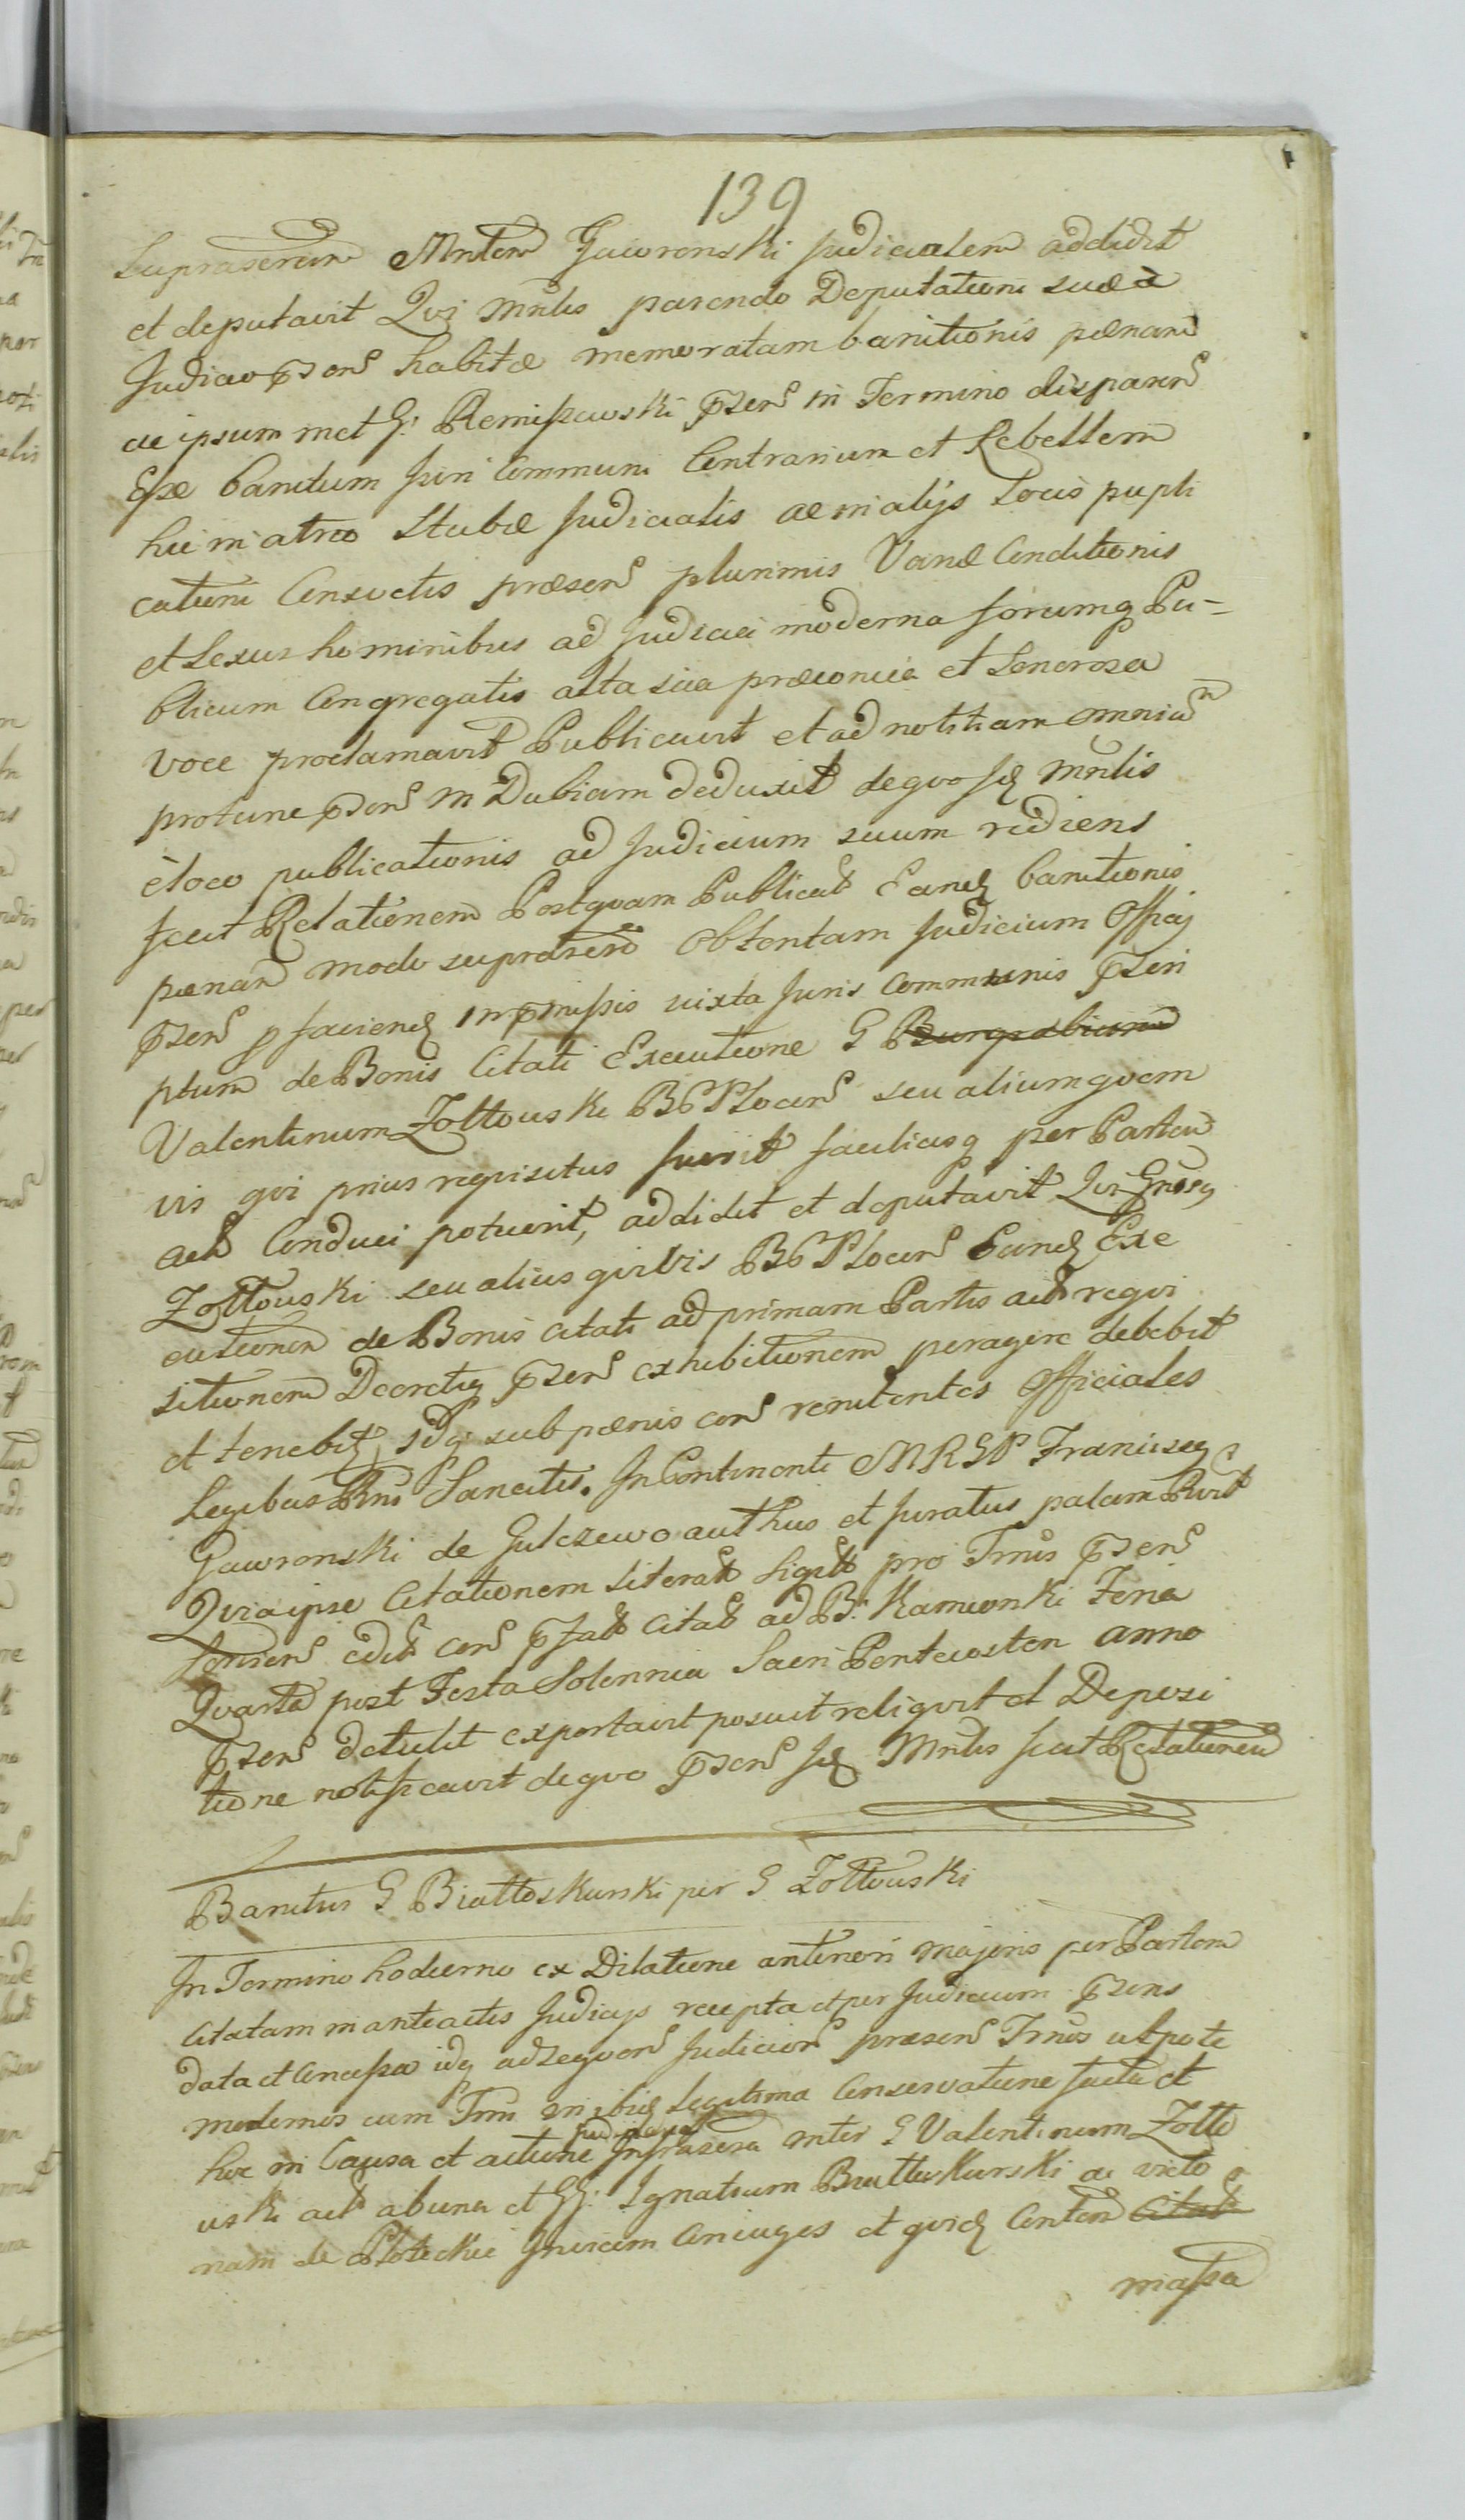 139
Suprascrem Mntem Gawronski Judicialem addidit
et deputavit Qvi Mnlis parendo Deputationi suæ à
Judicio pzens habitæ memoratam banitionis pænam
ac ipsum met G: Remiszewski pzens in Termino disparens
Esse banitum Juri Communi Contrarium et Rebellem
hic in atrio Stubæ Judicialis ac in alijs Locis publi
cationi Consvetis præsens plurimis Variæ Conditionis
et Sexus hominibus ad Judicia moderna forumq Pu-
blicum Congregatis alta sua præconica et Sonorosa
voce proclamavit Publicavit et ad notitiam omnium
protunc pzens in Dubiam deduxit deqvo Jd Mnlis
è loco publicationis ad Judicium suum rediens
fecit Relationem Postqvam Publicat Eand banitionis
pænam modo suprascro obtentam Judicium Officij
pzens p faciend inpmissis iuxta Juris Communis pzeri
ptum de Bonis Citati Executione G Burgrabium
Valentinum Zołtowski BCPlocens seu aliumqvem
vis qvi prius reqvisitus fuerit faciliusq per Partem
actt Conduci potuerit, addidit et deputavit Qvi Gnosq
Zołtowski seu alius qvivis BCPlocens Eand Exe
cutionem de Bonis Citati ad primam Partis actt reqvi
sitionem Decretiq pzens exhibitionem peragere debebit
et tenebit idq sub pænis cons renitentes Officiales
Legibus Rni Sancitis. In Continenti MRGP Franciscq
Gawronski de Gulczewo authus et Juratus palam Rvit
Qvia ipse Citationem Literatt Sigill pro Tmis pzens
Conserns edit cons pfatt Citatt ad B: Kamionki Feria
Qvarta post Festa Solennia Sacri Pentecosten anno
pzens detulit exportavit posuit reliqvit et Deposi
tione notificavit deqvo pzens Jd Mnlis fecit Relationem
Banitus G Białłoskurski per G Zołtowski
In Termino hodierno ex Dilatione anteriori majoris per Partem
Citatam in anteactis Judicijs recepta et per Judicium pzens
data et Concessa idq ad seqvens Judicior præsens Tmos utpote
modernos cum Tmi in ibid Legitima Conservatione facta et
Judiciali
hoc in Causa et actione Infrascra inter G Valentinum Zołto
wski actt ab una et GG: Ignatium Białłoskurski ac victo
nam de Płoteckie Invicem Coniuges et qvid Contm Citatt
massa